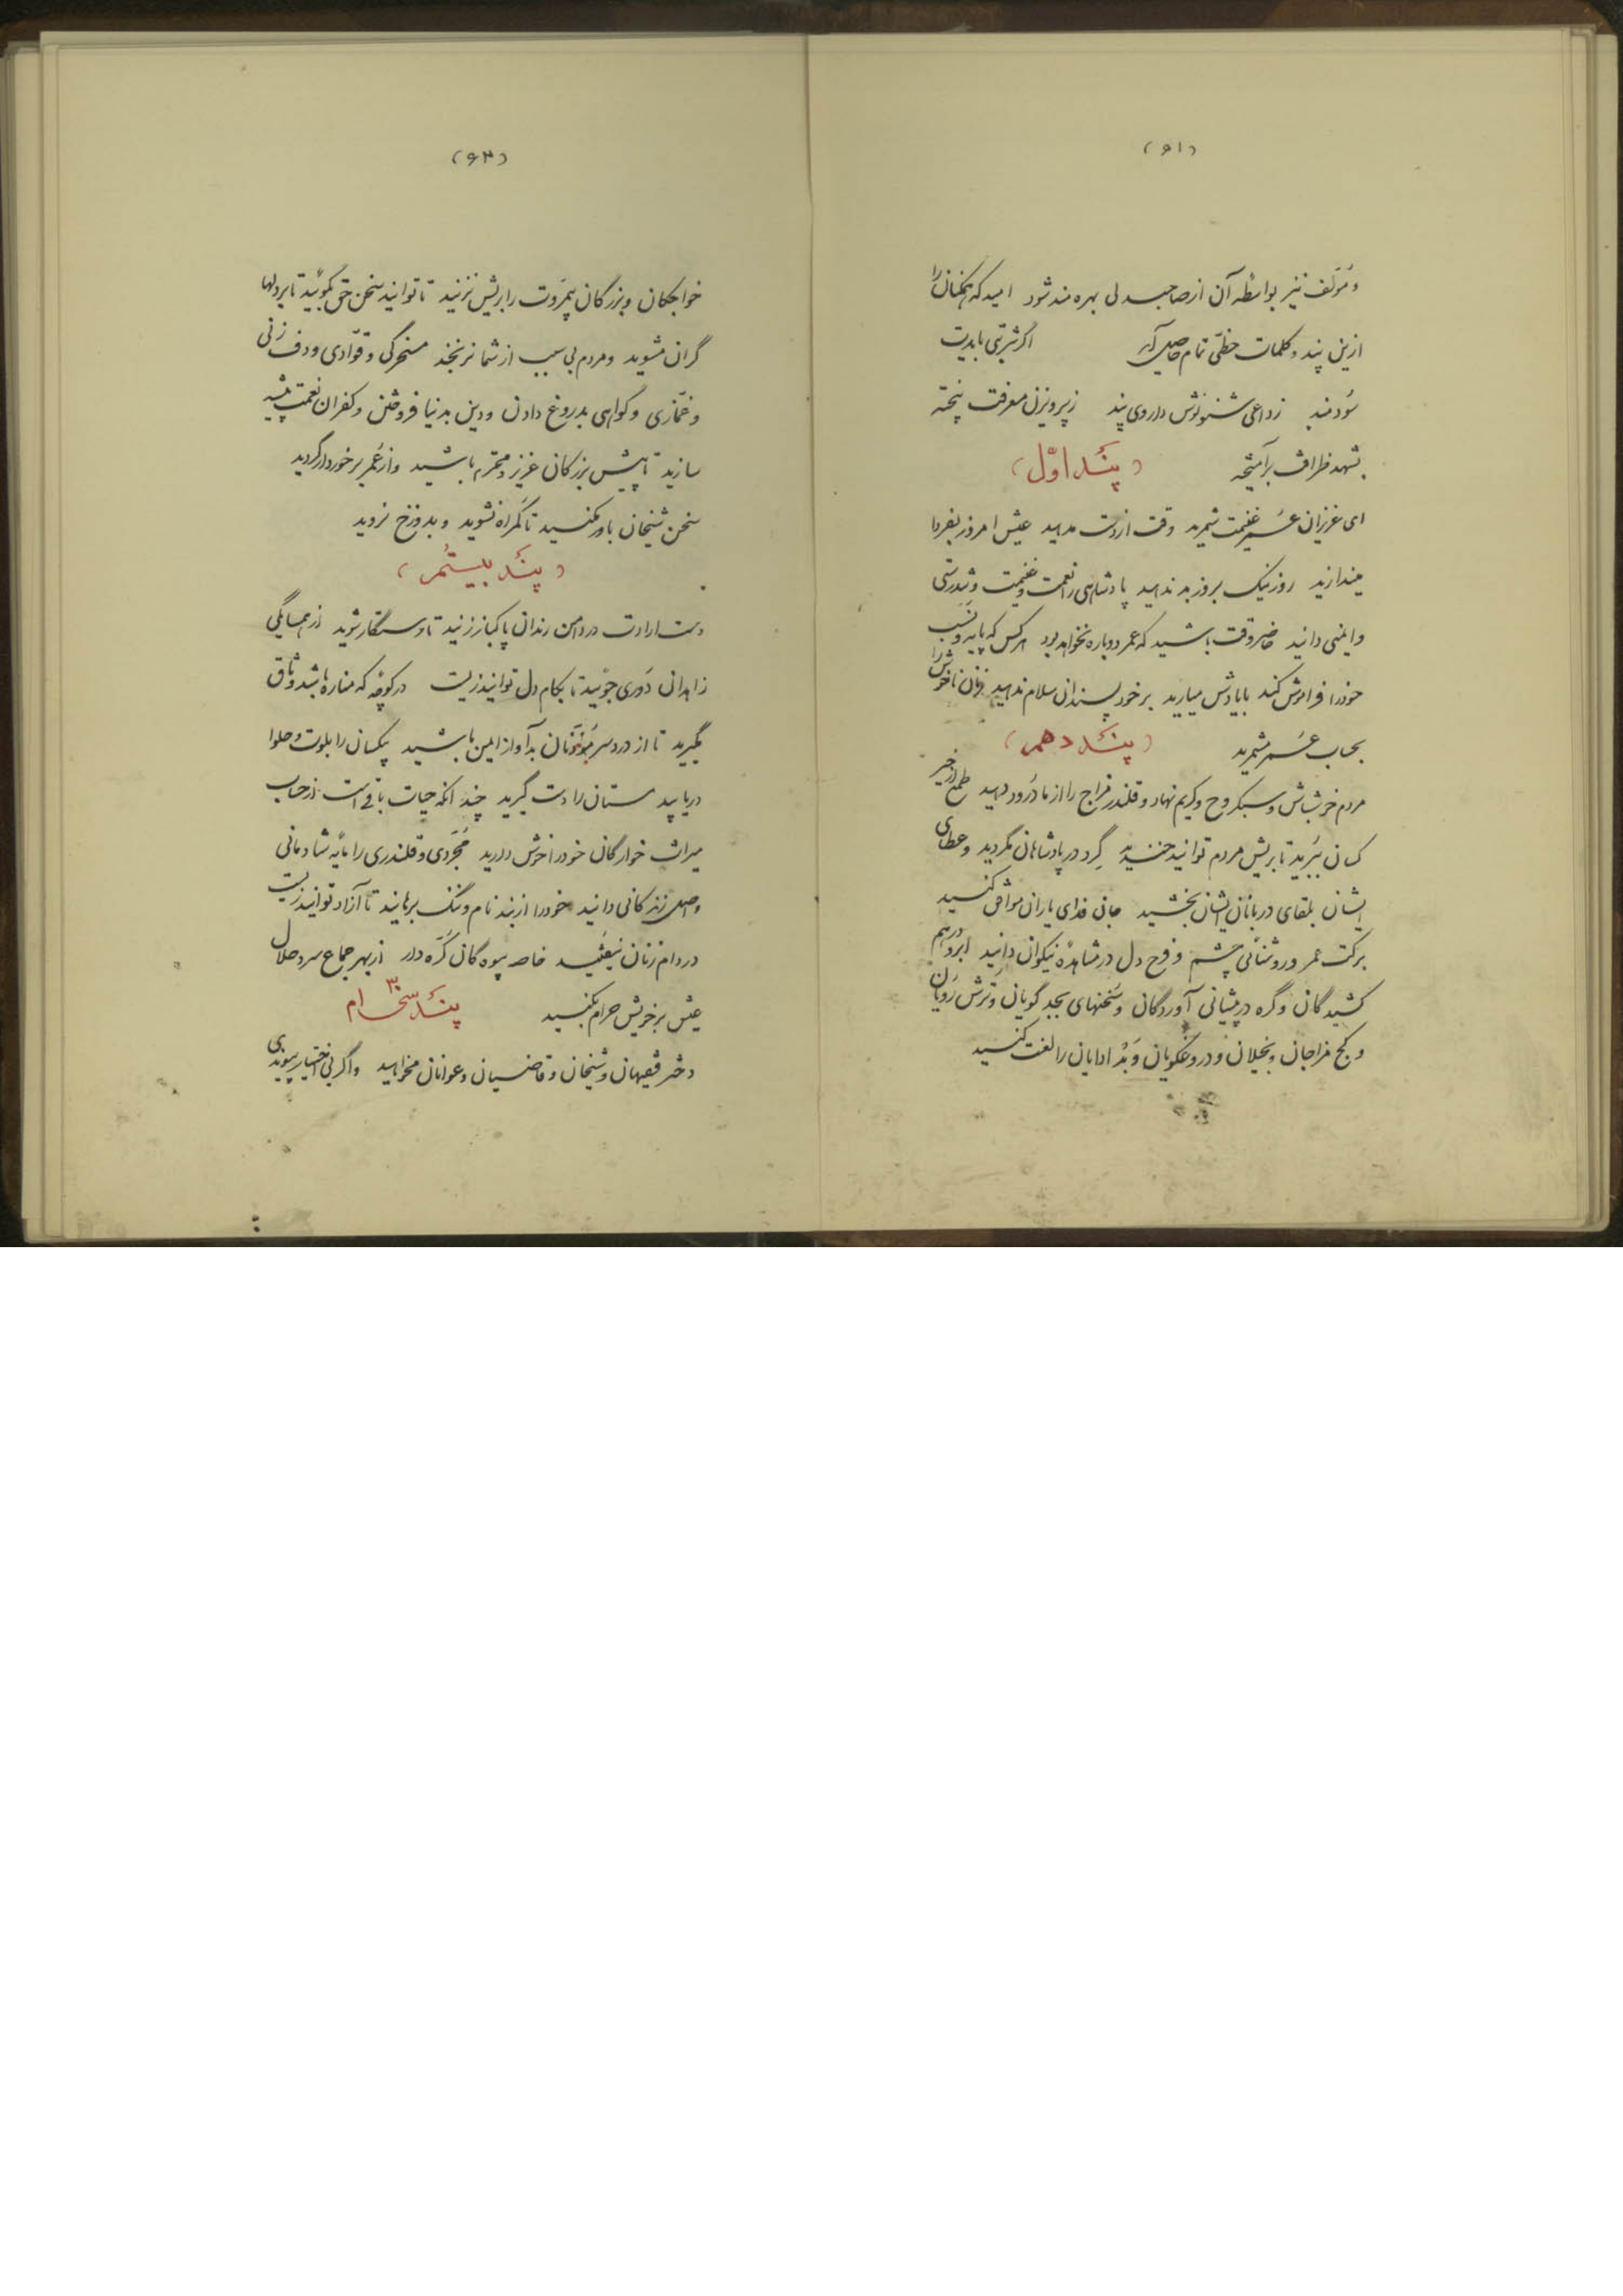 (۶۱)
و مؤلف نیز بواسطه آن از صاحبدلی بهره مند شود امید که همگنان را
ازین پند و کلمات حظی تمام حاصل آید اگر شربتی بایدت
سودمند ز داعی شنو نوش داروی پند ز پرویزن معرفت پیخته
بشهد ظرافت برآمیخته (پند اوّل)
ای عزیزان عمر غنیمت شمرید وقت از دست مدهید عیش امروز بفردا
میندازید روز نیک بروز بد ندهید پادشاهی را نعمت و غنیمت و تندرستی
و ایمنی دانید حاضر وقت باشید که عمر دوباره نخواهد بود هر کس که پایه و نسب
خود را فراموش کند بیادش میارید بر خود پسندان سلام ندهید زمان ناخوشی را
بحساب عمر مشمرید (پند دهم)
مردم خوشباش و سبکروح و کریم نهاد و قلندر مزاج را از ما درود دهید طمع از خیر
کسان ببرید تا بریش مردم توانید خندید گرد در پادشاهان مگردید و عطای
ایشان بلقای دربانان ایشان بخشید جان فدای یاران موافق کنید
برکت عمر و روشنائی چشم و فرح دل در مشاهدهٔ نیکوان دانید ابرو درهم
کشیدگان و گره در پیشانی آوردگان و سخنهای بجد گویان و ترش رویان
و کج مزاجان و بخیلان و دروغگویان و بد ادایان را لعنت کنید
(۶۳)
خواجگان و بزرگان بیمروت را بریش نزنید تا توانید سخن حق بگوئید تا بردلها
گران مشوید و مردم بی سبب از شما نرنجند مسخرگی و قوّادی و دف زنی
و غمّازی و گواهی بدروغ دادن و دین بدنیا فروختن و کفران نعمت پیشه
سازید تا پیش بزرگان عزیز و محترم باشید و از عمر برخوردار گردید
سخن شیخان باور مکنید تا گمراه نشوید و بدوزخ نروید
(پند بیستم)
دست ارادت در دامن رندان پاکباز زنید تا رستگار شوید از همسایگی
زاهدان دوری جوئید تا بکام دل توانید زیست در کوچه که مناره باشد وثاق
مگیرید تا از درد سر مؤذنان بدآواز ایمن باشید بنگیان را بلوت و حلوا
دریابید مستان را دست گیرید چندانکه حیات باقی است از حساب
میراث خوارگان خود را خوش دارید مجردی و قلندری را مایه شادمانی
و اصل زندگانی دانید خود را از بند نام و ننگ برهانید تا آزاد توانید زیست
در دام زنان نیفتید خاصه بیوه گان کرّه دار از بهر جماع سرد حلال
عیش بر خویش حرام مکنید پند سی‌ام
دختر فقیهان و شیخان و قاضیان و عوانان مخواهید و اگر بی اختیار پیوندی